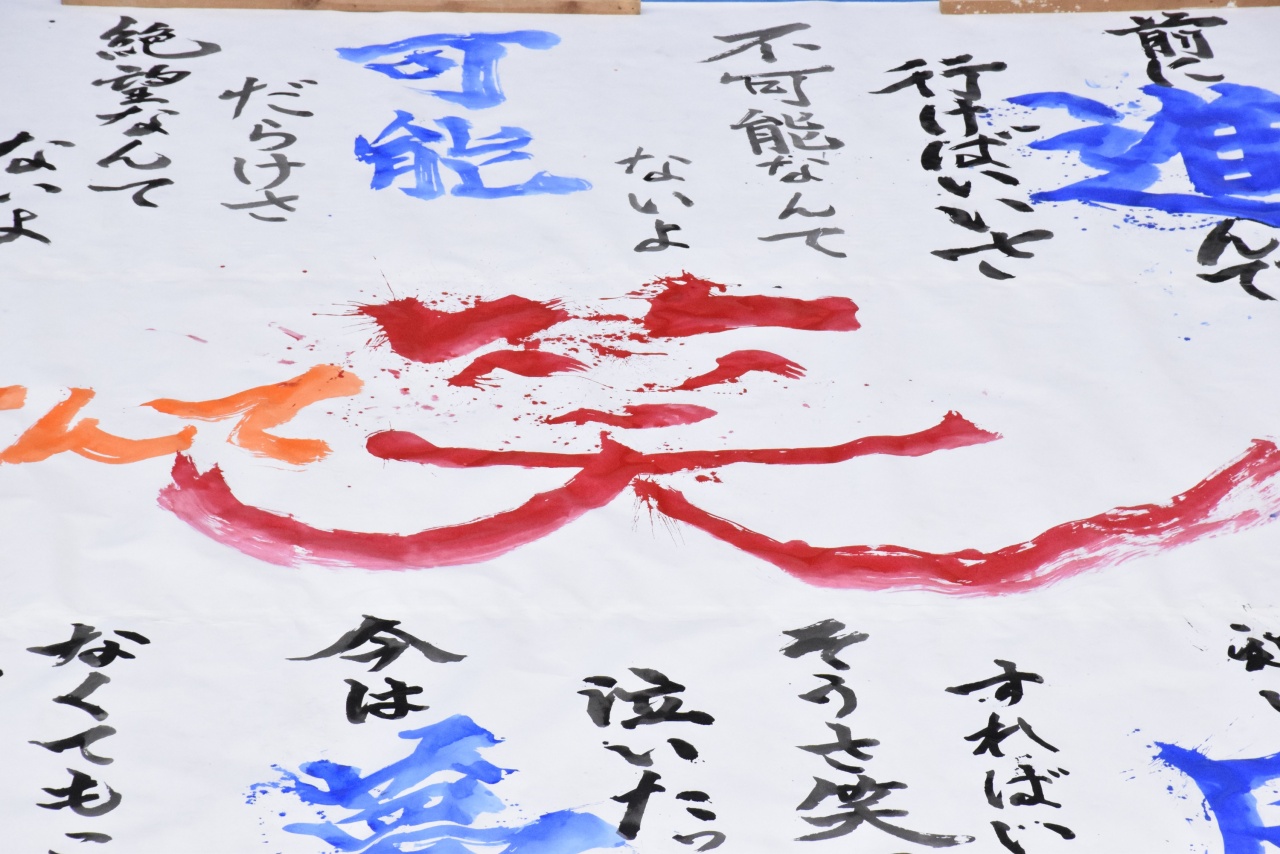 前に
進
んで
行けばいいさ
不可能なんて
ないよ
可能
だらけさ
絶望なんて
ないよ
笑
んて
すればいい
そうさ笑
泣いたっ
今は
なくても